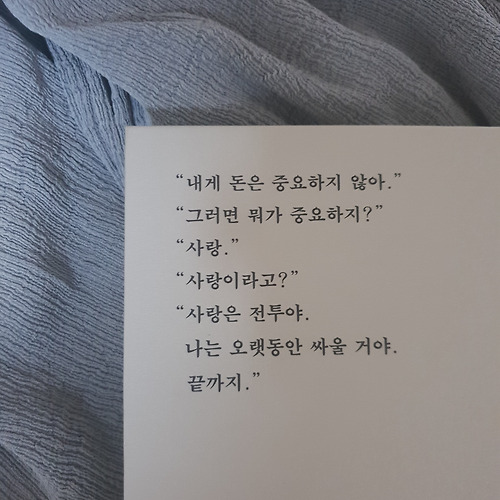 “내게 돈은 중요하지 않아.”
“그러면 뭐가 중요하지?”
“사랑.”
“사랑이라고?”
“사랑은 전투야.
나는 오랫동안 싸울 거야.
끝까지.”